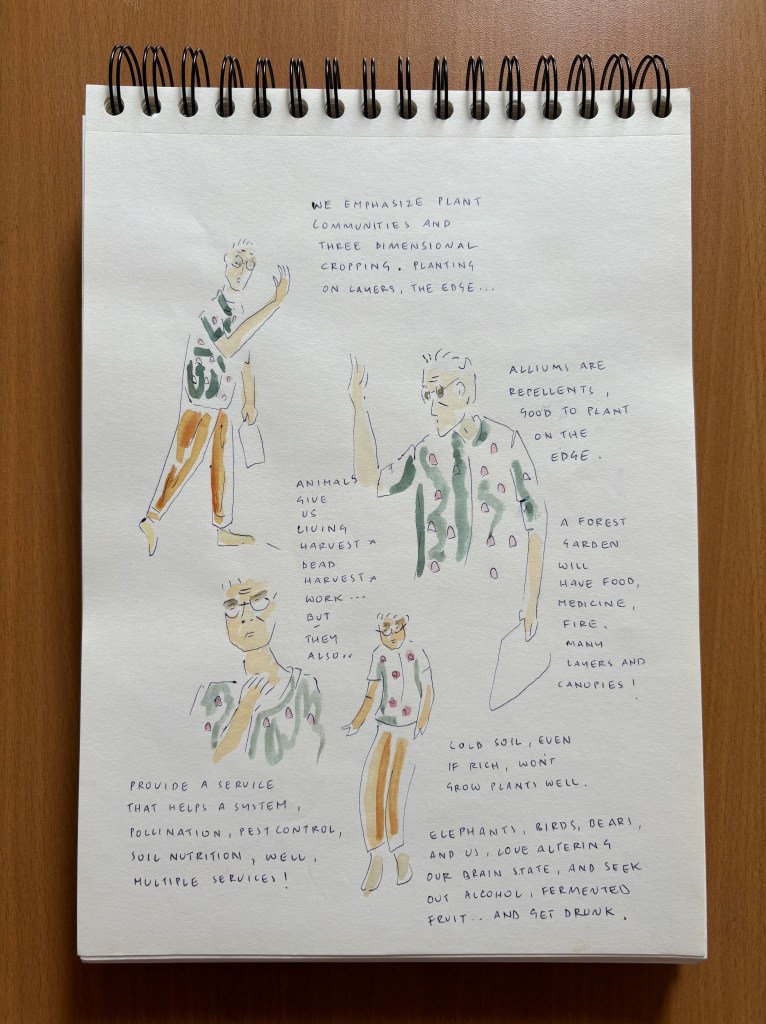 WE EMPHASIZE PLANT
COMMUNITIES AND
THREE DIMENSIONAL
CROPPING. PLANTING
ON LAYERS, THE EDGE...
ALLIUMS ARE
REPELLENTS,
GOOD TO PLANT
ON THE
EDGE.
ANIMALS
GIVE
US
LIVING
HARVEST *
DEAD
HARVEST *
WORK...
BUT
THEY
ALSO..
A FOREST
GARDEN
WILL
HAVE FOOD,
MEDICINE,
FIRE.
MANY
LAYERS AND
CANOPIES!
PROVIDE A SERVICE
THAT HELPS A SYSTEM,
POLLINATION, PEST CONTROL,
SOIL NUTRITION, WELL,
MULTIPLE SERVICES!
COLD SOIL, EVEN
IF RICH, WON'T
GROW PLANTS WELL.
ELEPHANTS, BIRDS, BEARS,
AND US, LOVE ALTERING
OUR BRAIN STATE, AND SEEK
OUT ALCOHOL, FERMENTED
FRUIT.. AND GET DRUNK.